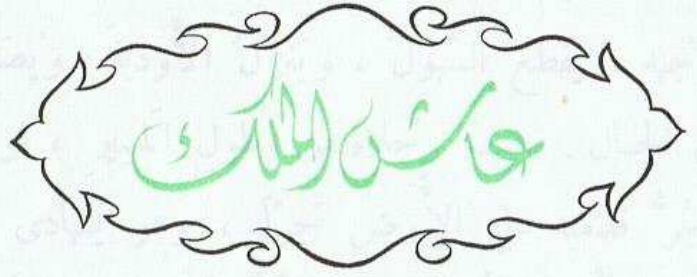 عاش الملك